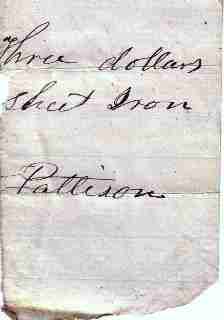 three dollars
sheet Iron
Pattison